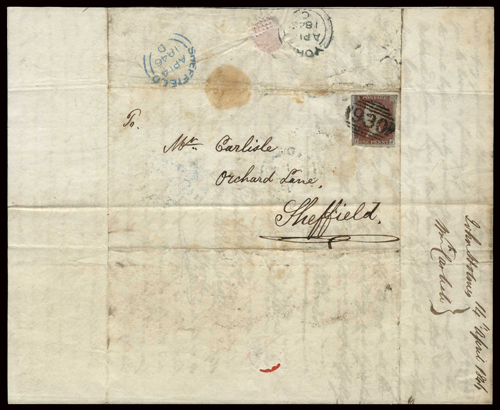 SHEFFIELD
AP 14
1846
D
YORK
AP 1
1846
C
930
To.
Mr. Carlisle
Orchard Lane,
Sheffield.
John Holmes 14 April 1846
Mr. Carlisle